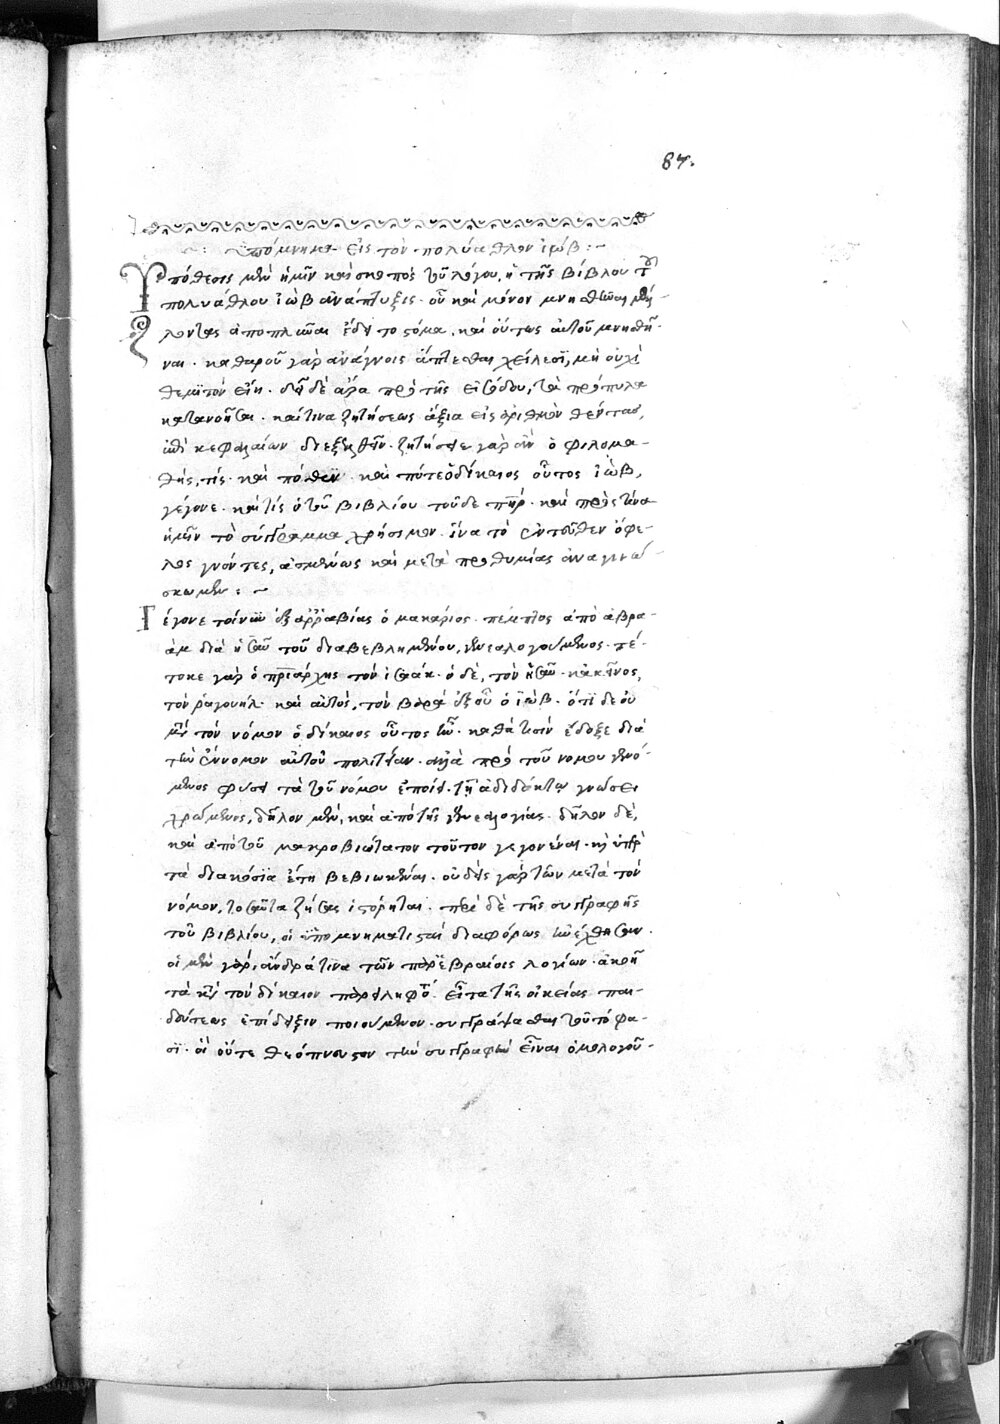 87.
ὑπόμνημα εἰς τὸν πολύαθλον ἰώβ:~
Ὑπόθεσις μὲν ἡμῖν καὶ σκοπὸς τοῦ λόγου, ἡ τῆς βίβλου τοῦ
πολυάθλου ἰὼβ ἀνάπτυξις. οὗ καὶ μόνον μνησθῆναι μέλ
λοντας ἀποπλῦναι ἔδει το στόμα, καὶ οὕτως αὐτοῦ μνησθῆ-
ναι. καθαροῦ γὰρ ἀνάγνοις ἅπτεσθαι χείλεσϊ, μὴ οὐχὶ
θεμϊτὸν εἴη. δεῖ δὲ ἄρα πρὸ τῆς εἰσόδου, τὰ πρόπυλα
κατανοῆσαι. καί τινα ζητήσεως ἄξια εἰς ἀριθμὸν θέντας,
ἐπὶ κεφαλαίων διεξελθεῖν. ζητήσειε γὰρ ἂν ὁ φιλομα-
θής, τίς καὶ πόθεν καὶ πότε ὁ δίκαιος οὗτος ἰὼβ,
γέγονε. καὶ τίς ὁ τοῦ βιβλίου τοῦδε πατήρ. καὶ πρὸς τίνα
ἡμῖν τὸ σύγγραμμα χρήσιμον. ἵνα τὸ ἐντεῦθεν ὄφε-
λος γνόντες, ἀσμένως καὶ μετὰ προθυμίας ἀναγινώ-
σκωμεν:~
Γέγονε τοίνυν ἐξ ἀρραβίας ὁ μακάριος. πέμπτος ἀπὸ ἀβρα-
ὰμ διὰ ἠσαῦ τοῦ διαβεβλημένου, γενεαλογούμενος. τέ-
τοκε γὰρ ὁ πριάρχης τὸν ἰσαάκ. ὁ δὲ, τὸν ἠσαῦ. κἀκεῖνος,
τὸν ῥαγουήλ. καὶ αὐτὸς, τὸν ζαρά ἐξ οὗ ὁ ἰώβ. ὅτϊ δὲ οὐ
μετὰ τὸν νόμον ὁ δίκαιος οὗτος ἦν. καθά τισὶν ἔδοξε διὰ
τὴν ἔννομον αὐτοῦ πολιτείαν. ἀλλὰ πρὸ τοῦ νομου γενό-
μενος φύσει τὰ τοῦ νόμου ἐποίει. τῇ ἀδιδάκτῳ γνώσει
χρώμενος, δῆλον μὲν, καὶ ἀπὸ τῆς γενεαλογίας. δῆλον δὲ,
καὶ ἀπὸ τοῦ μακροβιώτατον τοῦτον γεγονέναι. καὶ ὑπὲρ
τὰ διακόσϊα ἔτη βεβιωκέναι. οὐδεὶς γὰρ τῶν μετὰ τὸν
νόμον, τοσαῦτα ζήσας ἱστόρηται. περὶ δὲ τῆς συγγραφῆς
τοῦ βιβλίου, οἱ ὑπομνηματισταὶ διαφόρως ἠνέχθησαν.
οἱ μὲν γὰρ, ἄνδρά τινα τῶν παρ' ἑβραίοις λογίων. ἀκοῇ
τὰ κατὰ τὸν δίκαιον παρειληφότα. εἶτα τῆς οἰκείας παι-
δεύσεως ἐπίδειξιν ποιούμενον. συγγράψασθαι τοῦτό φα-
σϊ. οἱ οὔτε θεόπνευστον τὴν συγγραφὴν εἶναι ὁμολογοῦ-